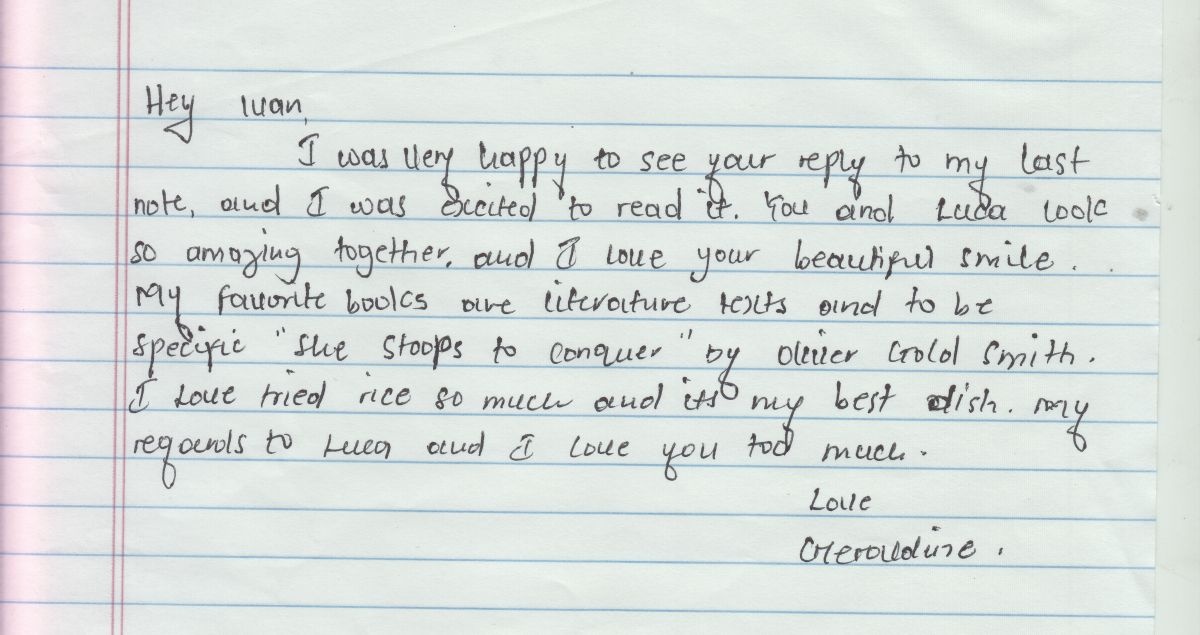 Hey Iuan,
I was very happy to see your reply to my last
note, and I was excited to read it. You and Luca look
so amazing together, and I love your beautiful smile.
My favorite books are literature texts and to be
specific "She Stoops to conquer" by Olivier Gold Smith.
I Love fried rice so much and its my best dish. My
regards to Luca and I love you too much.
Love
Geraldine.